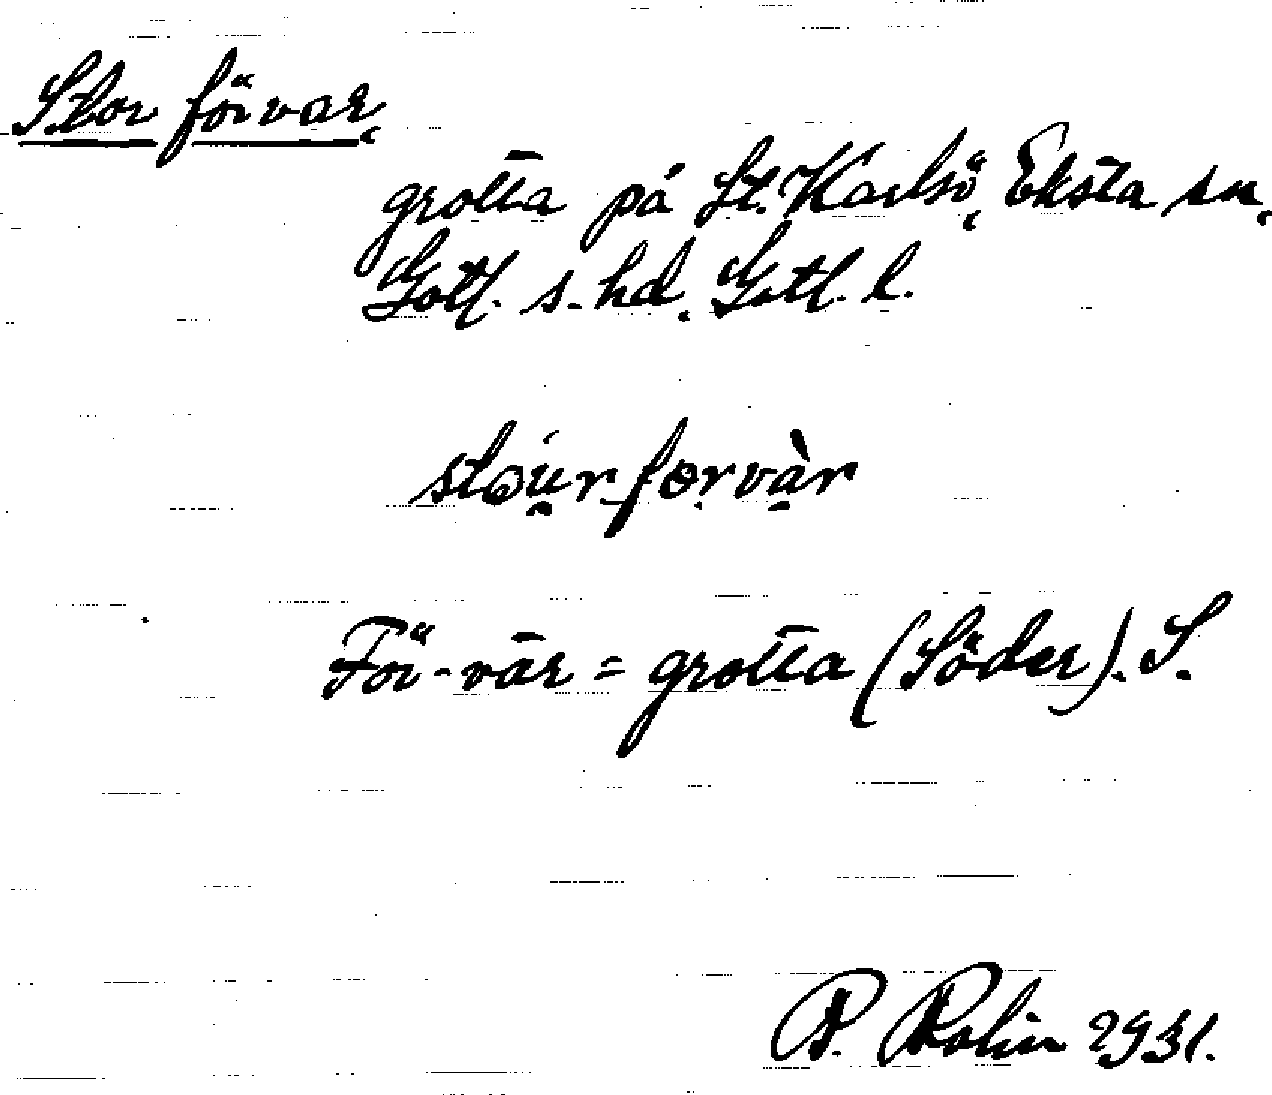 Stor förvar,
grotta på St. Karlsö, Eksta sn,
Gotl. s. hd, Gotl. l.
stoúr forvàr
För-var = grotta (Söder). S.
P. Rolin 1931.